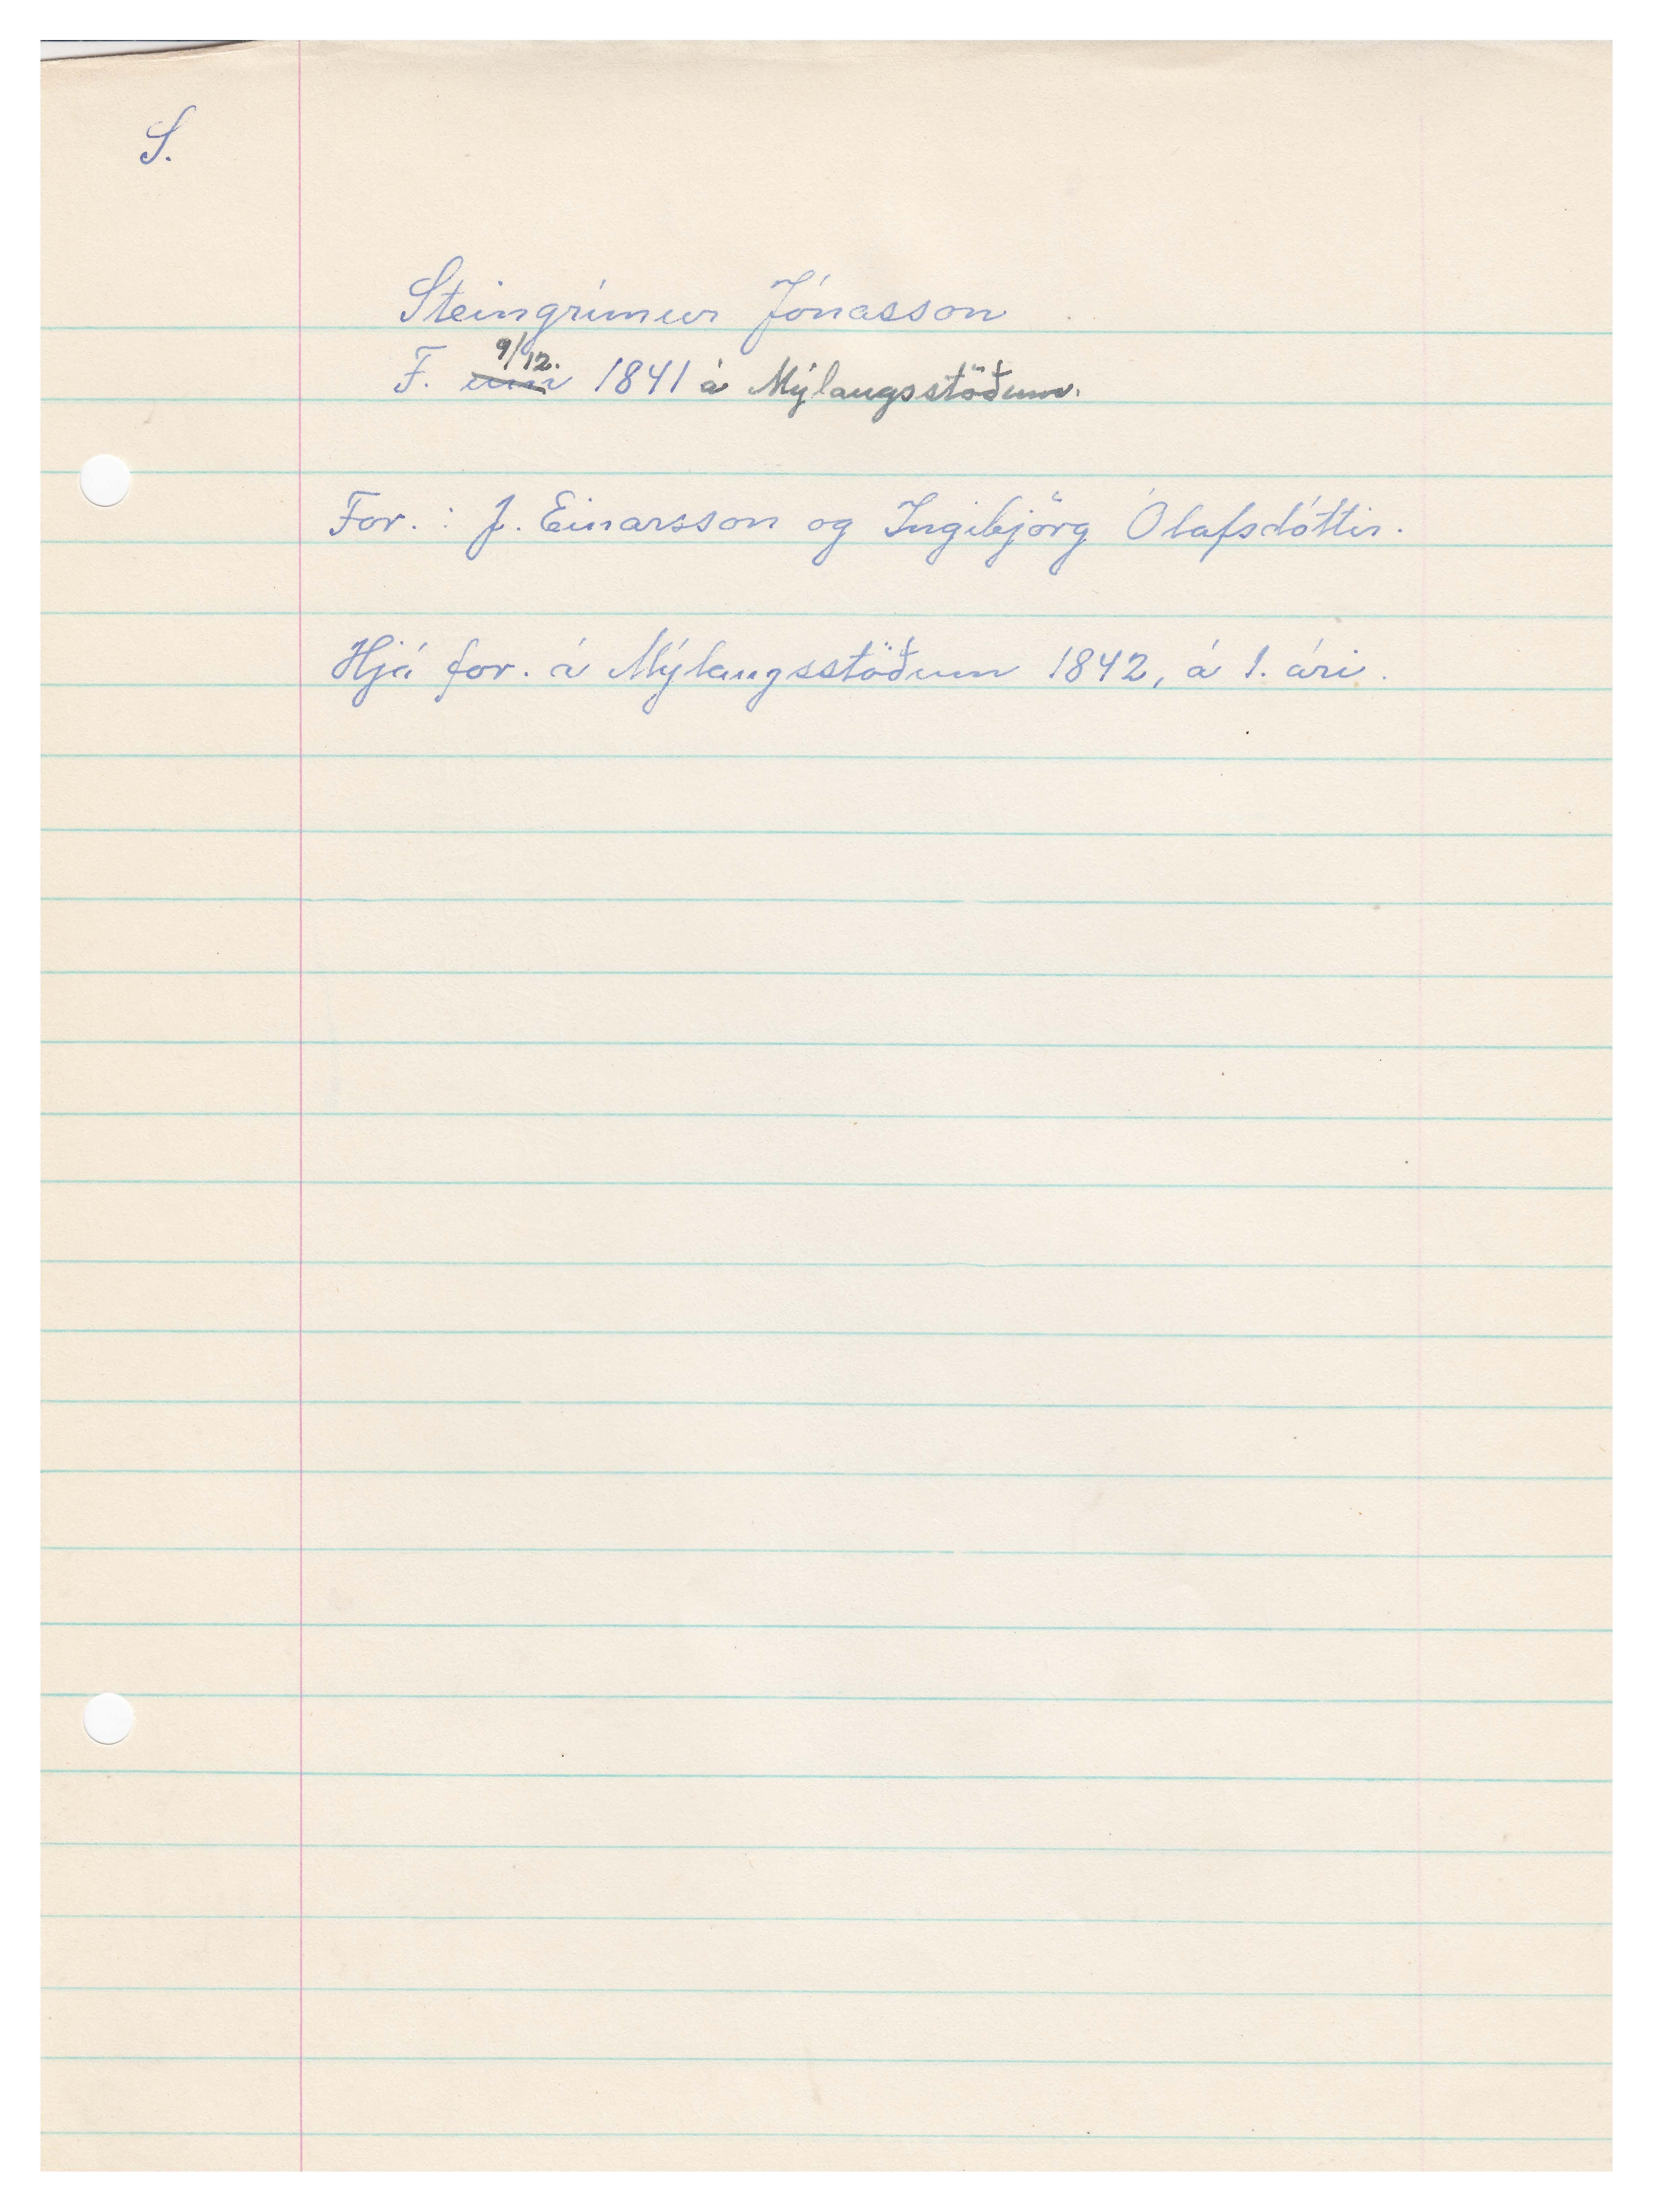 S.
Steingrímur Jónasson
F. um 9/12. 1841 á Mýlaugsstöðum.
For.: J. Einarsson og Ingibjörg Ólafsdóttir.
Hjá for. á Mýlaugsstöðum 1842, á 1. ári.